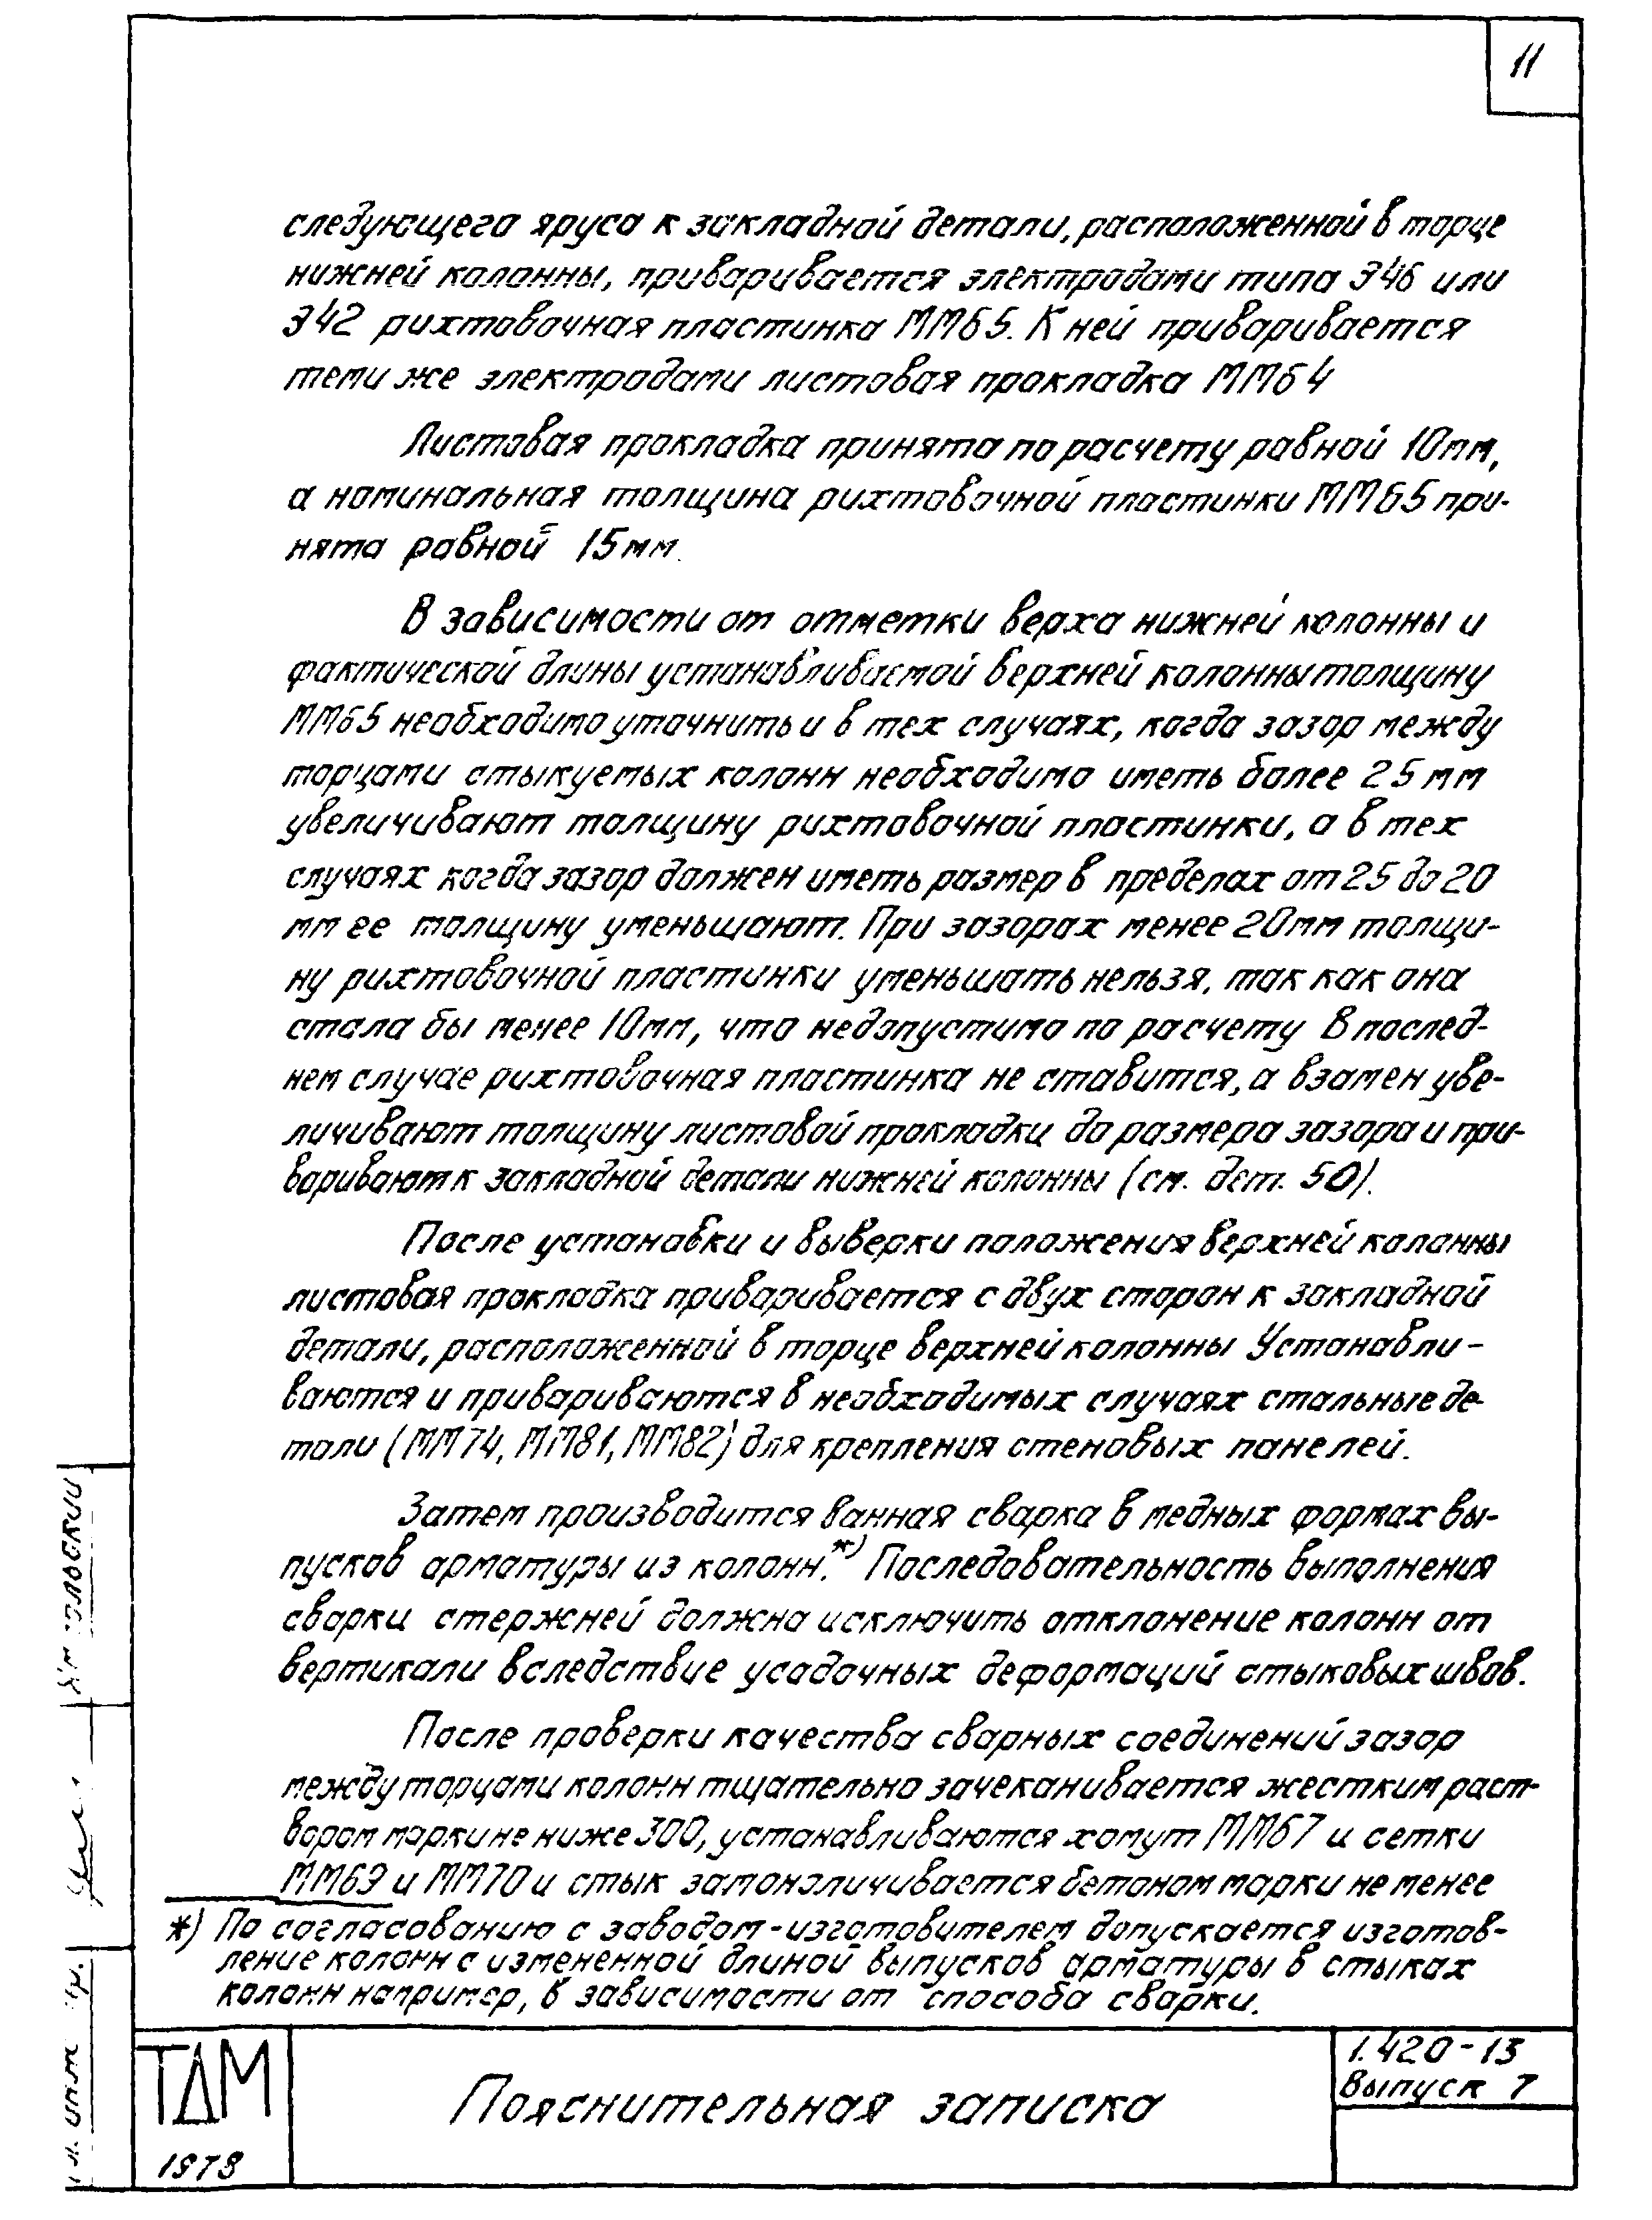 11
следующего яруса к закладной детали, расположенной в торце
нижней колонны, приваривается электродами типа Э46 или
Э42 рихтовочная пластинка ММ65. К ней приваривается
теми же электродами листовая прокладка ММ64
Листовая прокладка принята по расчету равной 10мм,
а номинальная толщина рихтовочной пластинки ММ65 при-
нята равной 15мм.
В зависимости от отметки верха нижней колонны и
фактической длины устанавливаемой верхней колонны толщину
ММ65 необходимо уточнить и в тех случаях, когда зазор между
торцами стыкуемых колонн необходимо иметь более 25мм
увеличивают толщину рихтовочной пластинки, а в тех
случаях когда зазор должен иметь размер в пределах от 25 до 20
мм ее толщину уменьшают. При зазорах менее 20мм толщи-
ну рихтовочной пластинки уменьшать нельзя, так как она
стала бы менее 10мм, что недопустимо по расчету В послед-
нем случае рихтовочная пластинка не ставится, а взамен уве-
личивают толщину листовой прокладки до размера зазора и при-
варивают к закладной детали нижней колонны (см. дет. 50).
После установки и выверки положения верхней колонны
листовая прокладка приваривается с двух сторон к закладной
детали, расположенной в торце верхней колонны Устанавли-
ваются и привариваются в необходимых случаях стальные де-
тали (ММ74, ММ81, ММ82) для крепления стеновых панелей.
Затем производится ванная сварка в медных формах вы-
пусков арматуры из колонн.*) Последовательность выполнения
сварки стержней должна исключить отклонение колонн от
вертикали вследствие усадочных деформаций стыковых швов.
После проверки качества сварных соединений зазор
между торцами колонн тщательно зачеканивается жестким раст-
вором марки не ниже 300, устанавливаются хомут ММ67 и сетки
ММ69 и ММ70 и стык замоноличивается бетоном марки не менее
*) По согласованию с заводом-изготовителем допускается изготов-
ление колонн с измененной длиной выпусков арматуры в стыках
колонн например, в зависимости от способа сварки.
ТДМ
1978
Пояснительная записка
1.420-13
Выпуск 7